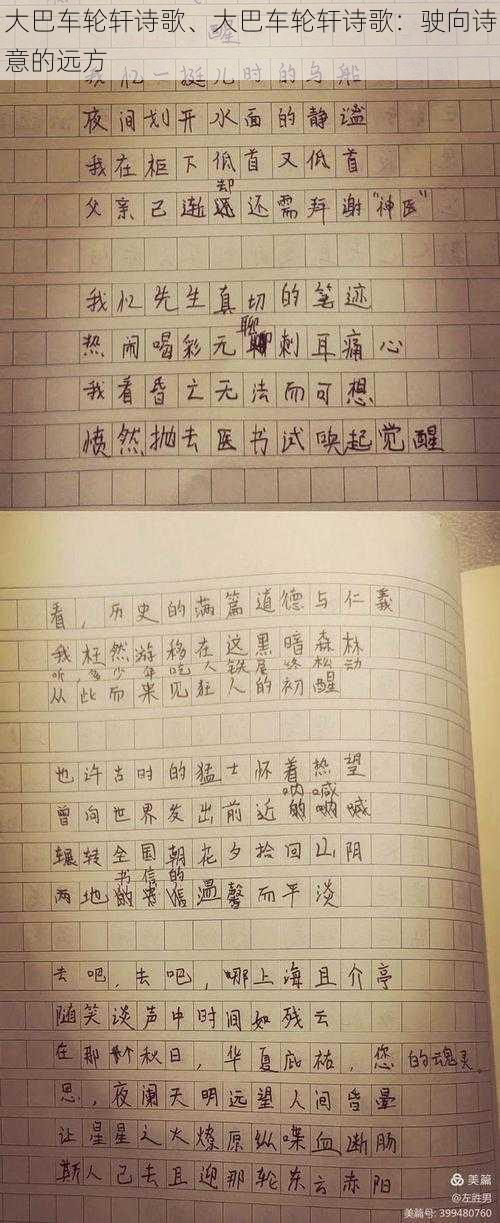 大巴车轮轩诗歌、大巴车轮轩诗歌：驶向诗
意的远方
我忆一挺儿时的乌船
夜间划开水面的静谧
我在柜下低首又低首
父亲已渐却还需拜谢“神医”
我忆先生真切的笔迹
热闹喝彩无聊刺耳痛心
我看昏亡无法而可想
愤然抛去医书试唤起觉醒
看，历史的满篇道德与仁義
我枉然游移在这黑暗森林
听，多少年吃人铁屋终松动
从此而来见狂人的初醒
也许古时的猛士怀着热望
曾向世界发出前近呐喊的呐喊
辗转全国朝花夕拾回山阴
两地书信的温馨而平淡
去吧，去吧，哪上海且介亭
随笑谈声中时间如残云
在那个秋日，华夏庇祐，您的魂灵。
思，夜阑天明远望人间昏晕
让星星之火燎原纵喋血断肠
斯人已去且迎那轮东云赤阳
美篇
@左胜男
美篇号: 399480760